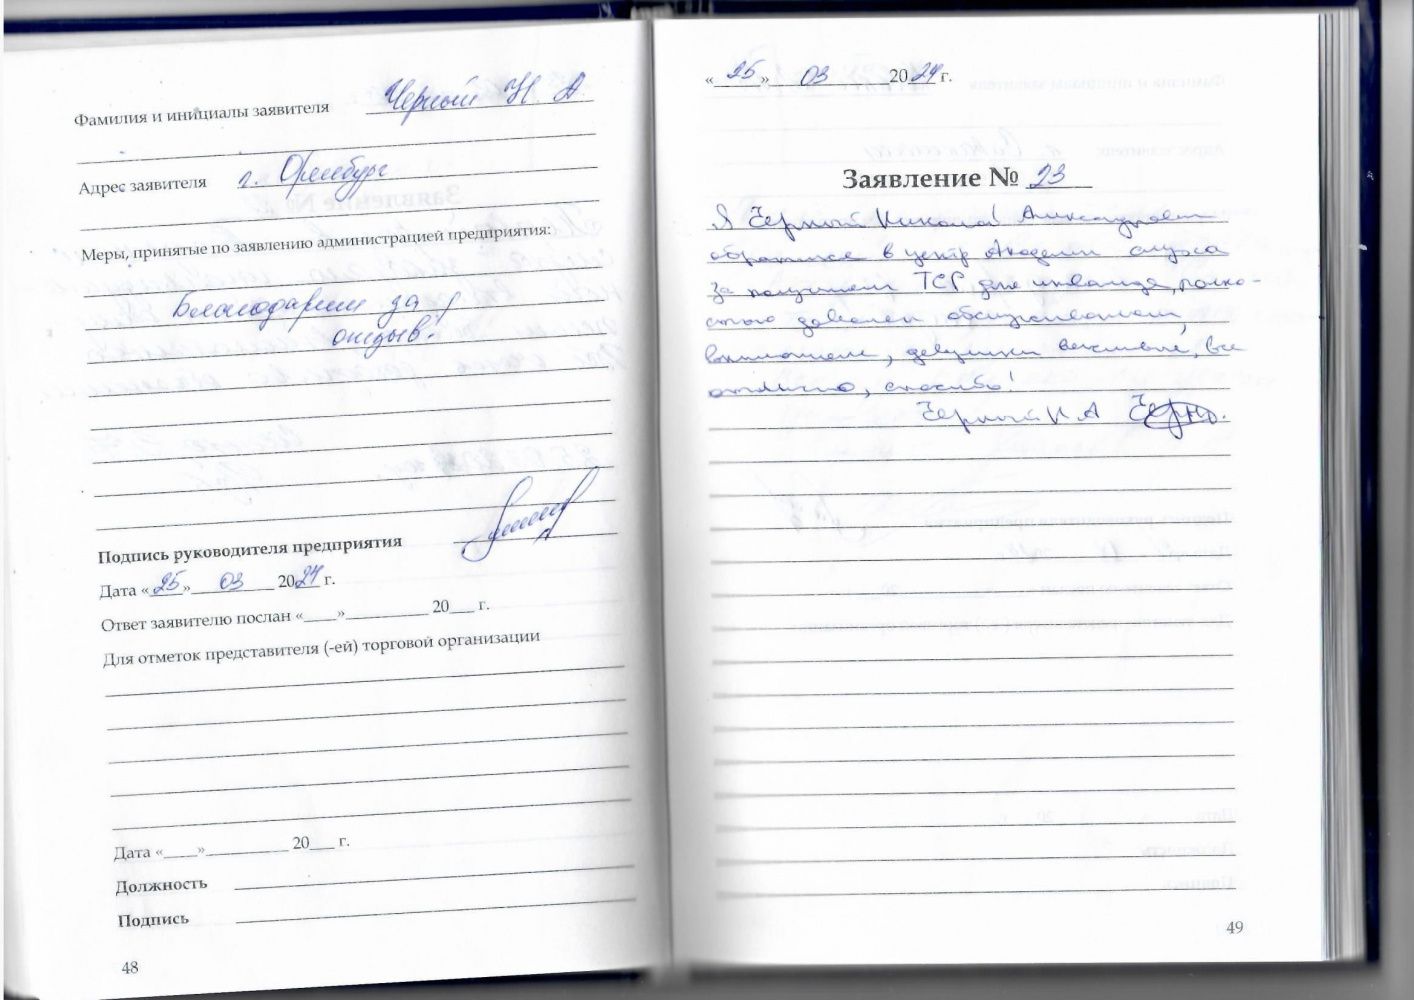 Фамилия и инициалы заявителя Черный Н. А
Адрес заявителя г. Оренбург
Меры, принятые по заявлению администрацией предприятия:
Благодарим за
отзыв!
Подпись руководителя предприятия
Дата «25» 03 2024 г.
Ответ заявителю послан «____»__________ 20___ г.
Для отметок представителя (-ей) торговой организации
Дата «____»__________ 20___ г.
Должность
Подпись
48
«25» 03 2024 г.
Заявление № 23
Я Черный Николай Александрович
обратился в центр Академии слуха
за получением ТСР для инвалида, полно-
стью доволен обслуживанием,
вниманием, девушки вежливые, все
отлично, спасибо!
Черный Н. А Черн.
49